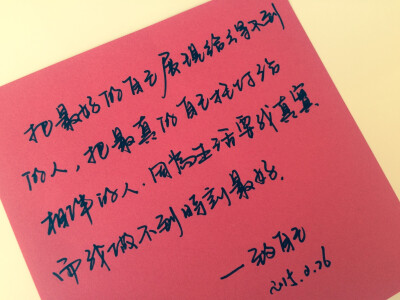 把最好的自己展现给得不到
的人，把最真的自己托付给
相伴的人.因为生活要我真实
而我做不到时刻最好.
—致自己
2015.9.26